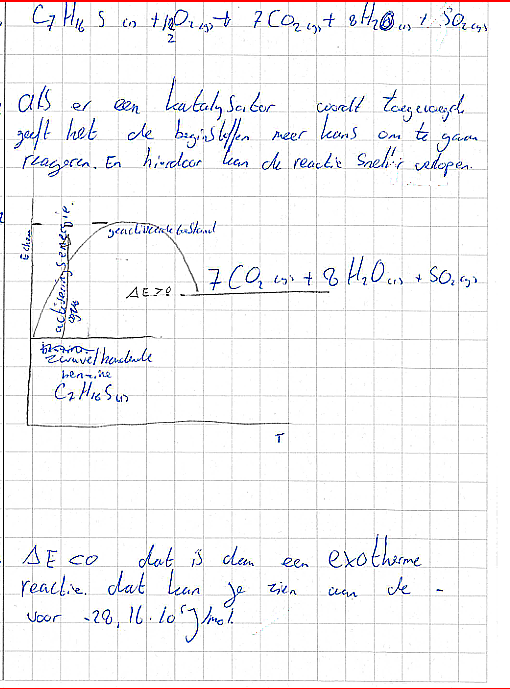 C7H16 S (l) + 12 O2 (g) → 7CO2 (g) + 8H2O (l) + SO2 (g)
als er een katalysator wordt toegevoegd
geeft het de beginstoffen meer kans om te gaan
reageren. En hierdoor kan de reactie sneller verlopen.
Echem
activeringsenergie.
geactiveerde toestand
ΔE>0
7CO2 (g) + 8H2O (l) + SO2 (g)
zwavelhoudende
benzine
C7H16S (l)
T
ΔE <0 dat is dan een exotherme
reactie. dat kan je zien aan de -
voor -28,16·10^5 J/mol.